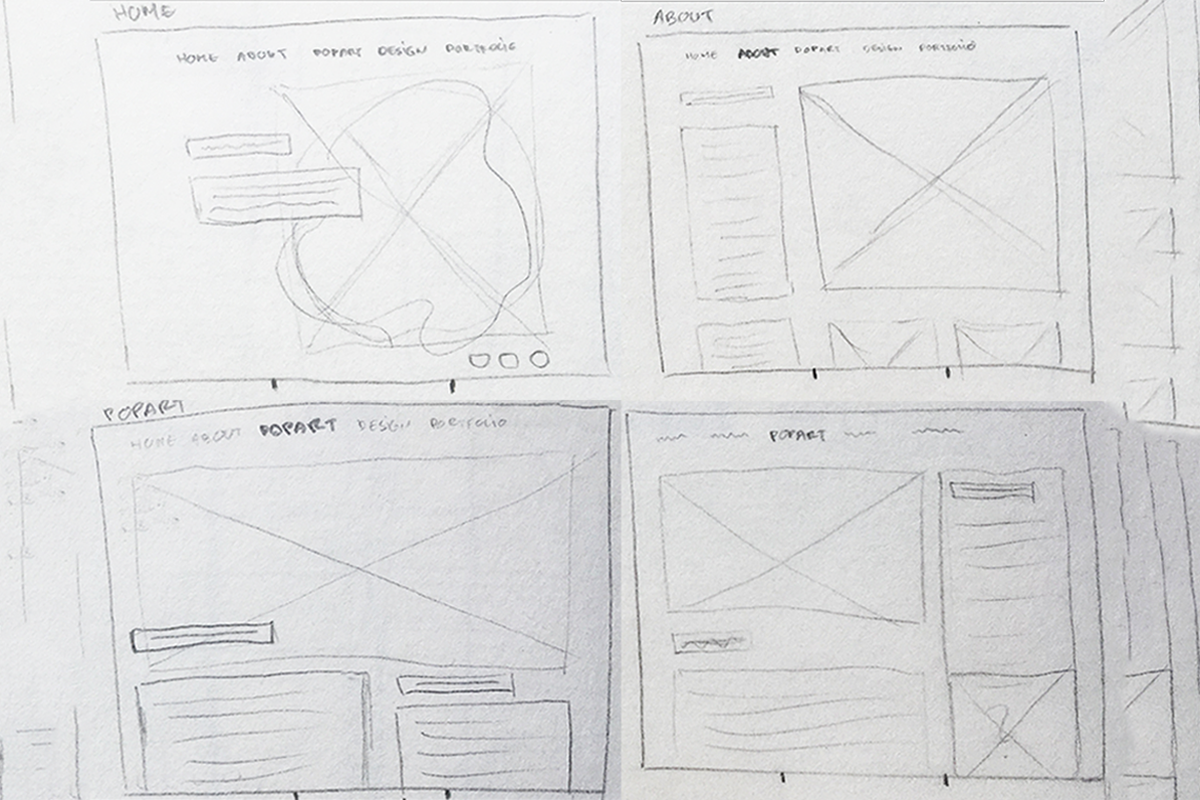 HOME
HOME ABOUT POPART DESIGN PORTFOLIO
ABOUT
HOME ABOUT POPART DESIGN PORTFOLIO
POPART
HOME ABOUT POPART DESIGN PORTFOLIO
POPART